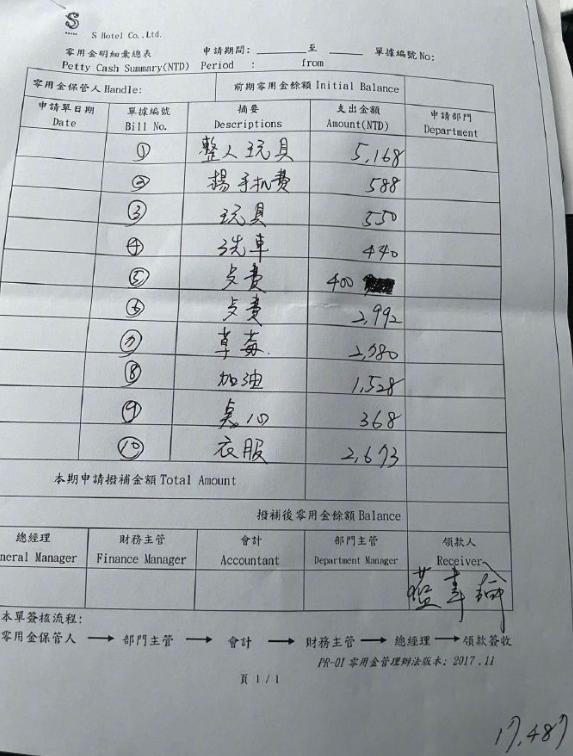 S
S Hotel Co.,Ltd.
零用金明細彙總表 申請期間: 至 單據編號No:
Petty Cash Summary(NTD) Period : from
零用金保管人Handle: 前期零用金餘額Initial Balance
申請單日期 單據編號 摘要 支出金額 申請部門
Date Bill No. Descriptions Amount(NTD) Department
① 整人玩具 5,168
② 楊手机費 588
③ 玩具 550
④ 洗車 440
⑤ 点費 400
⑥ 点費 2,992
⑦ 草莓
⑧ 加油 1,528
⑨ 桌心 368
⑩ 衣服 2,673
本期申請撥補金額Total Amount
撥補後零用金餘額Balance
總經理 財務主管 會計 部門主管 領款人
neral Manager Finance Manager Accountant Department Manager Receiver
本單簽核流程:
零用金保管人 → 部門主管 → 會計 → 財務主管 → 總經理 → 領款簽收
PR-01 零用金管理辦法版本: 2017.11
頁 1/1
17,487